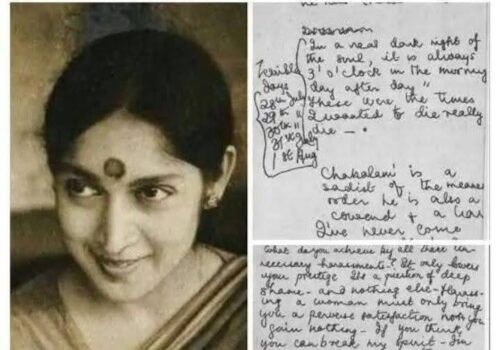 In a real dark night of
the soul, it is always
3 'o' clock in the morning
day after day "
These were the times
I wanted to die really
die — .
Terrible
days
28th July
29th "
30th "
31st July
1st Aug
Chakalam' is a
sadist of the meanest
order he is also a
coward + a liar
I've never come
What do you achieve by all these un-
necessary harassments - It only lowers
your prestige Its a question of deep
shame - and nothing else - Harass-
ing a woman must only bring
you a perverse satisfaction you
gain nothing - If you think
you can break my spirit - Im